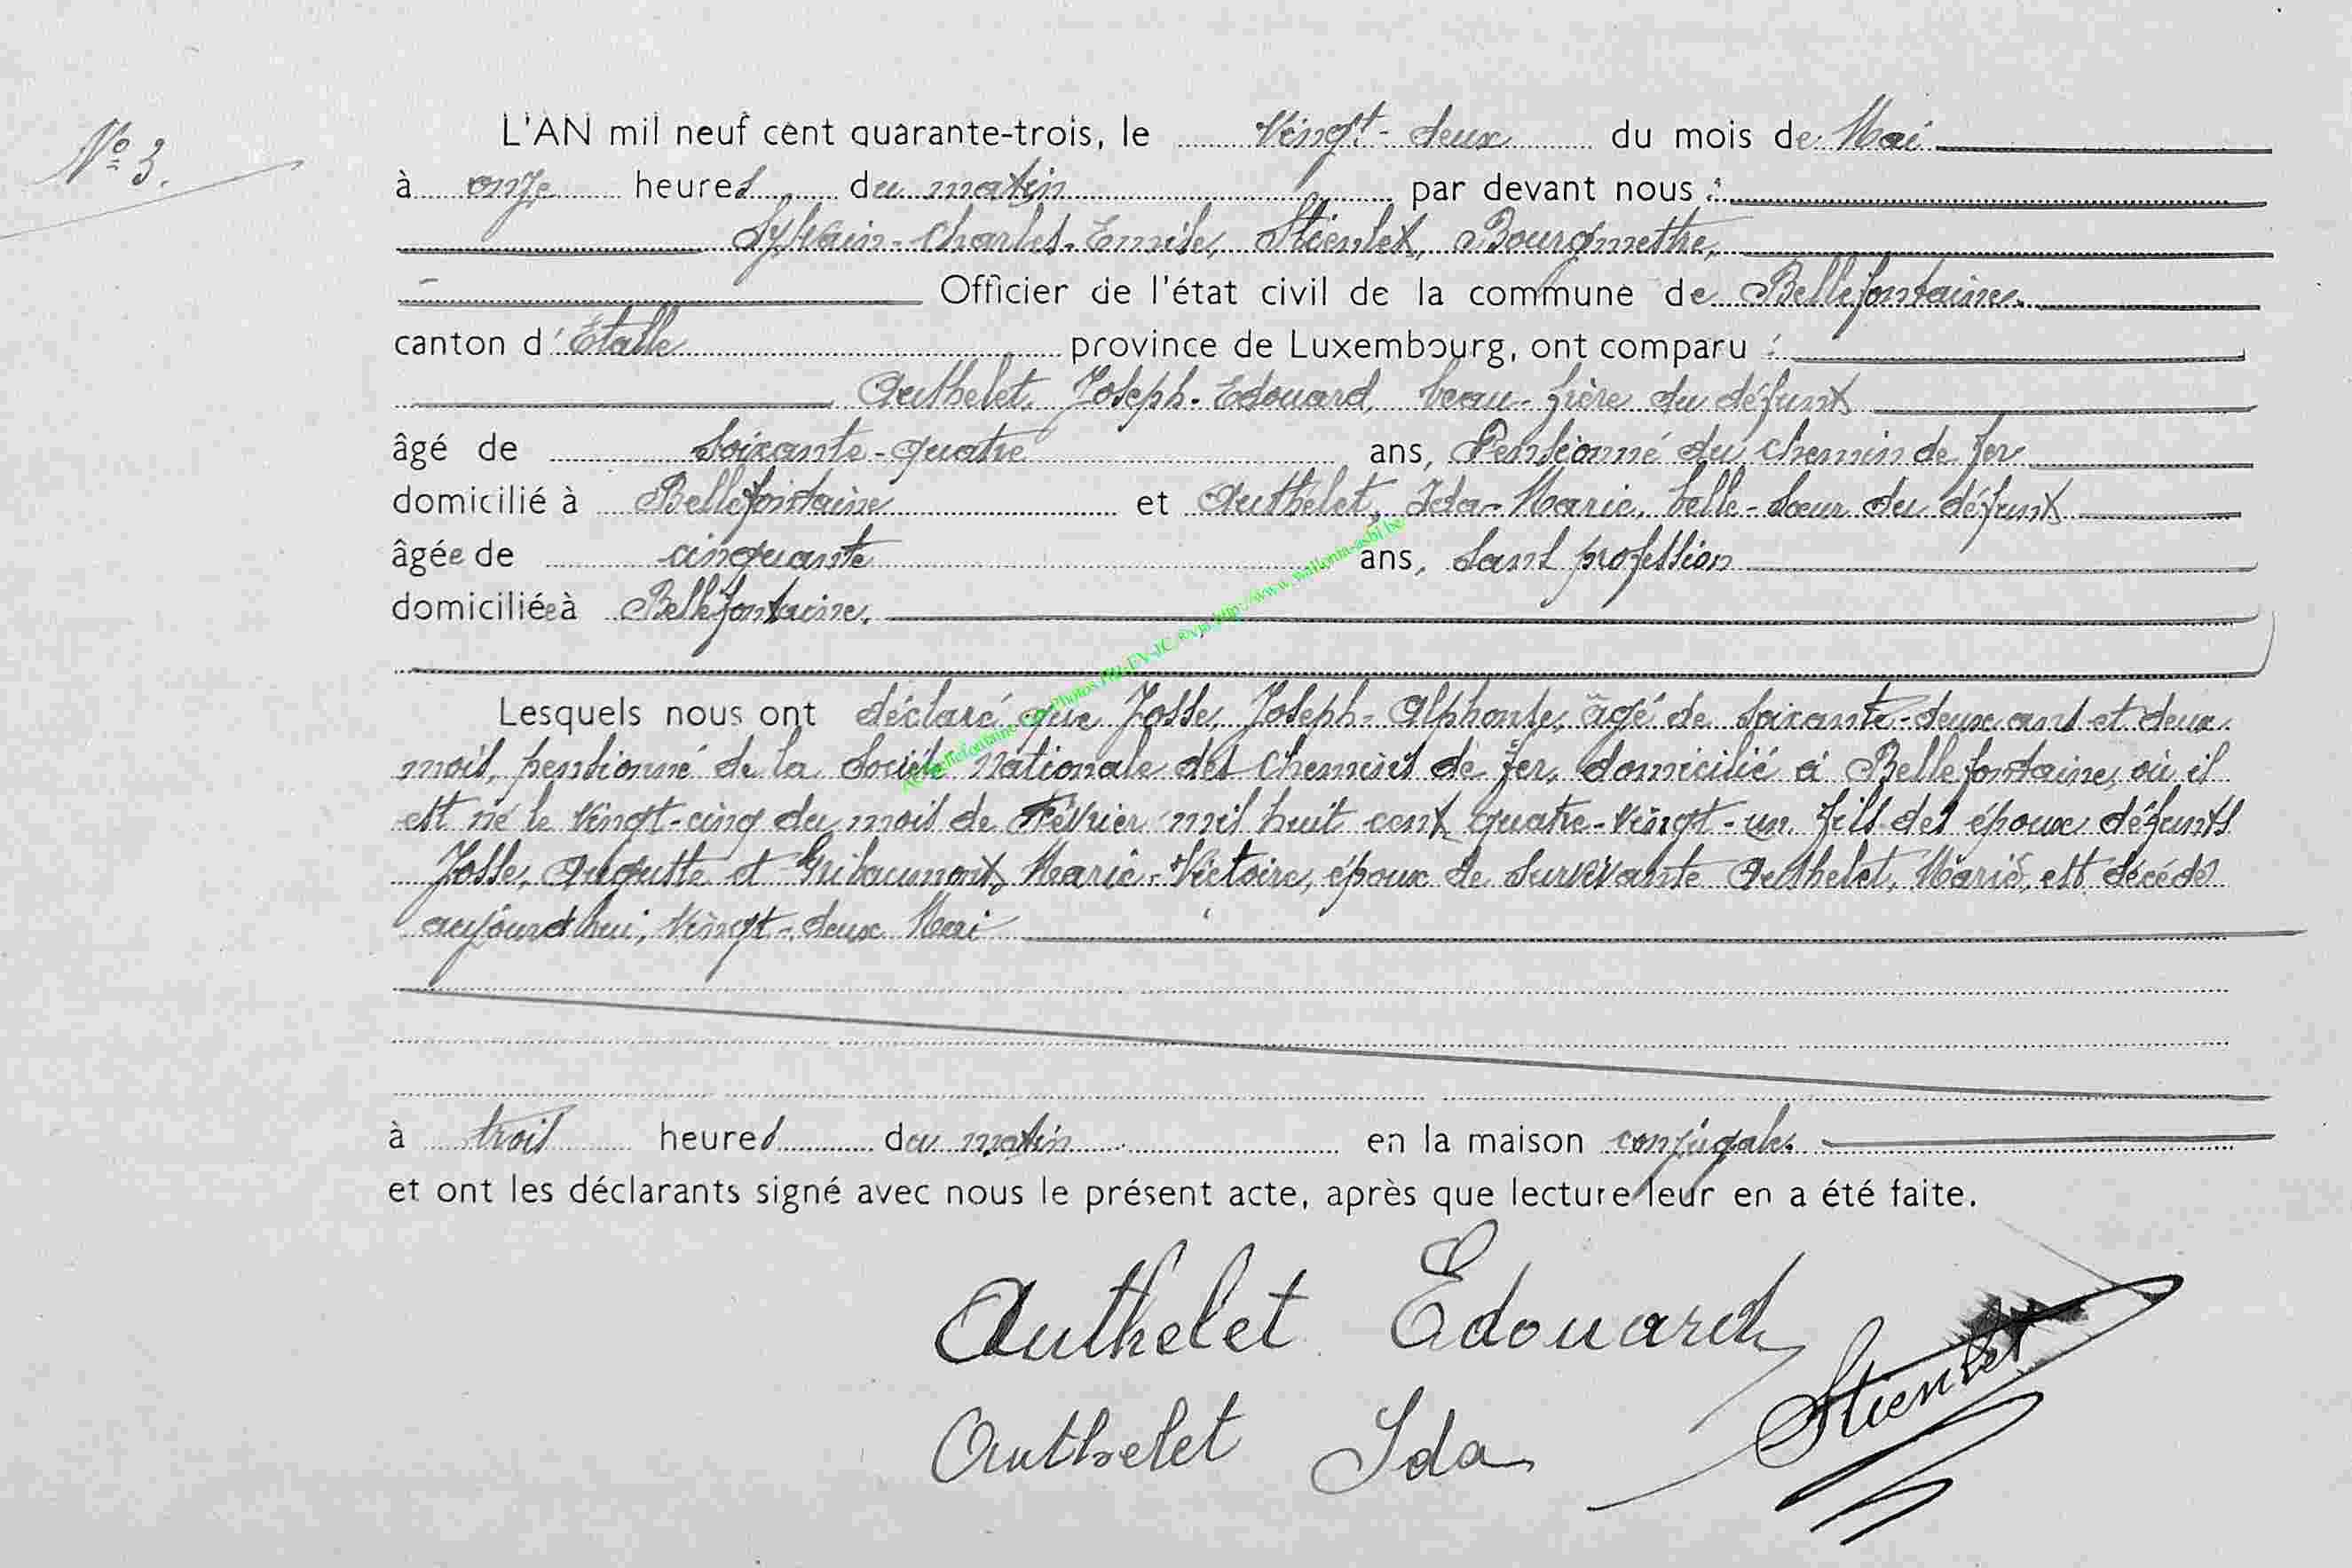 N° 3.
L'AN mil neuf cent quarante-trois, le Vingt-deux du mois de Mai
à onze heures du matin par devant nous :
Sylvain-Charles-Emile, Stienlet, Bourgmestre,
Officier de l'état civil de la commune de Bellefontaine.
canton d'Etalle province de Luxembourg, ont comparu :
Authelet, Joseph-Edouard, beau-frère du défunt
âgé de soixante-quatre ans, Pensionné du chemin de fer
domicilié à Bellefontaine et Authelet, Ida-Marie, belle-sœur du défunt
âgée de cinquante ans, sans profession
domiciliée à Bellefontaine.
Lesquels nous ont déclaré que Josse, Joseph-Alphonse, âgé de soixante-deux ans et deux
mois, pensionné de la Société Nationale des Chemins de fer, domicilié à Bellefontaine, où il
est né le vingt-cinq du mois de Février mil huit cent quatre-vingt-un, fils des époux défunts
Josse, Auguste et Gribaumont, Marie-Victoire, époux de survivante Authelet, Marie, est décédé
aujourd'hui, vingt-deux Mai
à trois heures du matin en la maison conjugale.
et ont les déclarants signé avec nous le présent acte, après que lecture leur en a été faite.
Authelet Edouard
Authelet Ida
Stienlet
http://www.wallonia-asbl.be